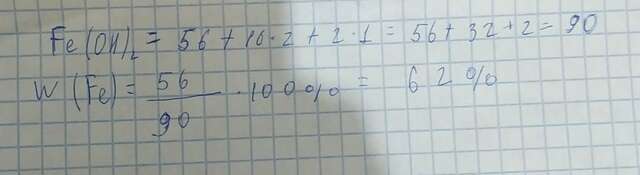 Fe(OH)₂ = 56 + 16·2 + 2·1 = 56 + 32 + 2 = 90
W (Fe) = 56/90 · 100% = 62%